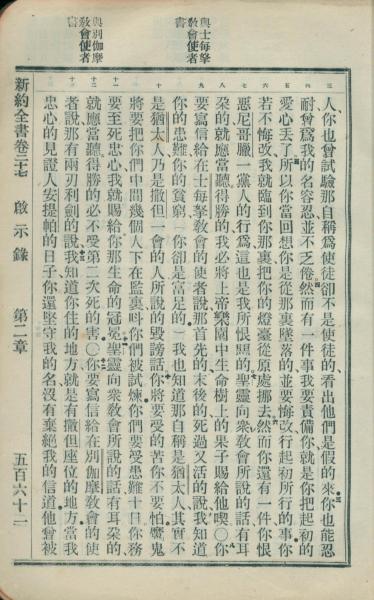 與士每拏
敎會使者
書
與別伽摩
敎會使者
書
三
人你也曾試驗那自稱爲使徒卻不是使徒的看出他們是假的來你也能忍
四
耐曾爲我的名容忍並不乏倦然而有一件事我要責備你就是你把起初的
五
愛心丟了所以你當回想你是從那裏墜落的並要悔改行起初所行的事你
六
若不悔改我就臨到你那裏把你的燈臺從原處挪去然而你還有一件你恨
七
惡尼哥臘一黨人的行爲這也是我所恨惡的聖靈向衆敎會所說的話有耳
八
朶的就應當聽得勝的我必將上帝樂園中生命樹上的果子賜給他喫〇你
要寫信給在士每拏敎會的使者說那首先的末後的死過又活的說我知道
九
你的患難你的貧窮(你卻是富足的)我也知道那自稱是猶太人其實不
十
是猶太人乃是撒但一會的人所說的毀謗話你將要受的苦你不要怕魔鬼
將要把你們中間幾個人下在監裏呌你們被試煉你們要受患難十日你務
十一
要至死忠心我就賜給你那生命的冠冕聖靈向衆敎會所說的話有耳朶的
十二
就應當聽得勝的必不受第二次死的害〇你要寫信給在別伽摩敎會的使
十三
者說那有兩刃利劍的說我知道你住的地方就是有撒但座位的地方當我
忠心的見證人安提帕的日子你還堅守我的名沒有棄絕我的信道他曾被
新約全書卷二十七 啟示錄 第二章 五百六十二